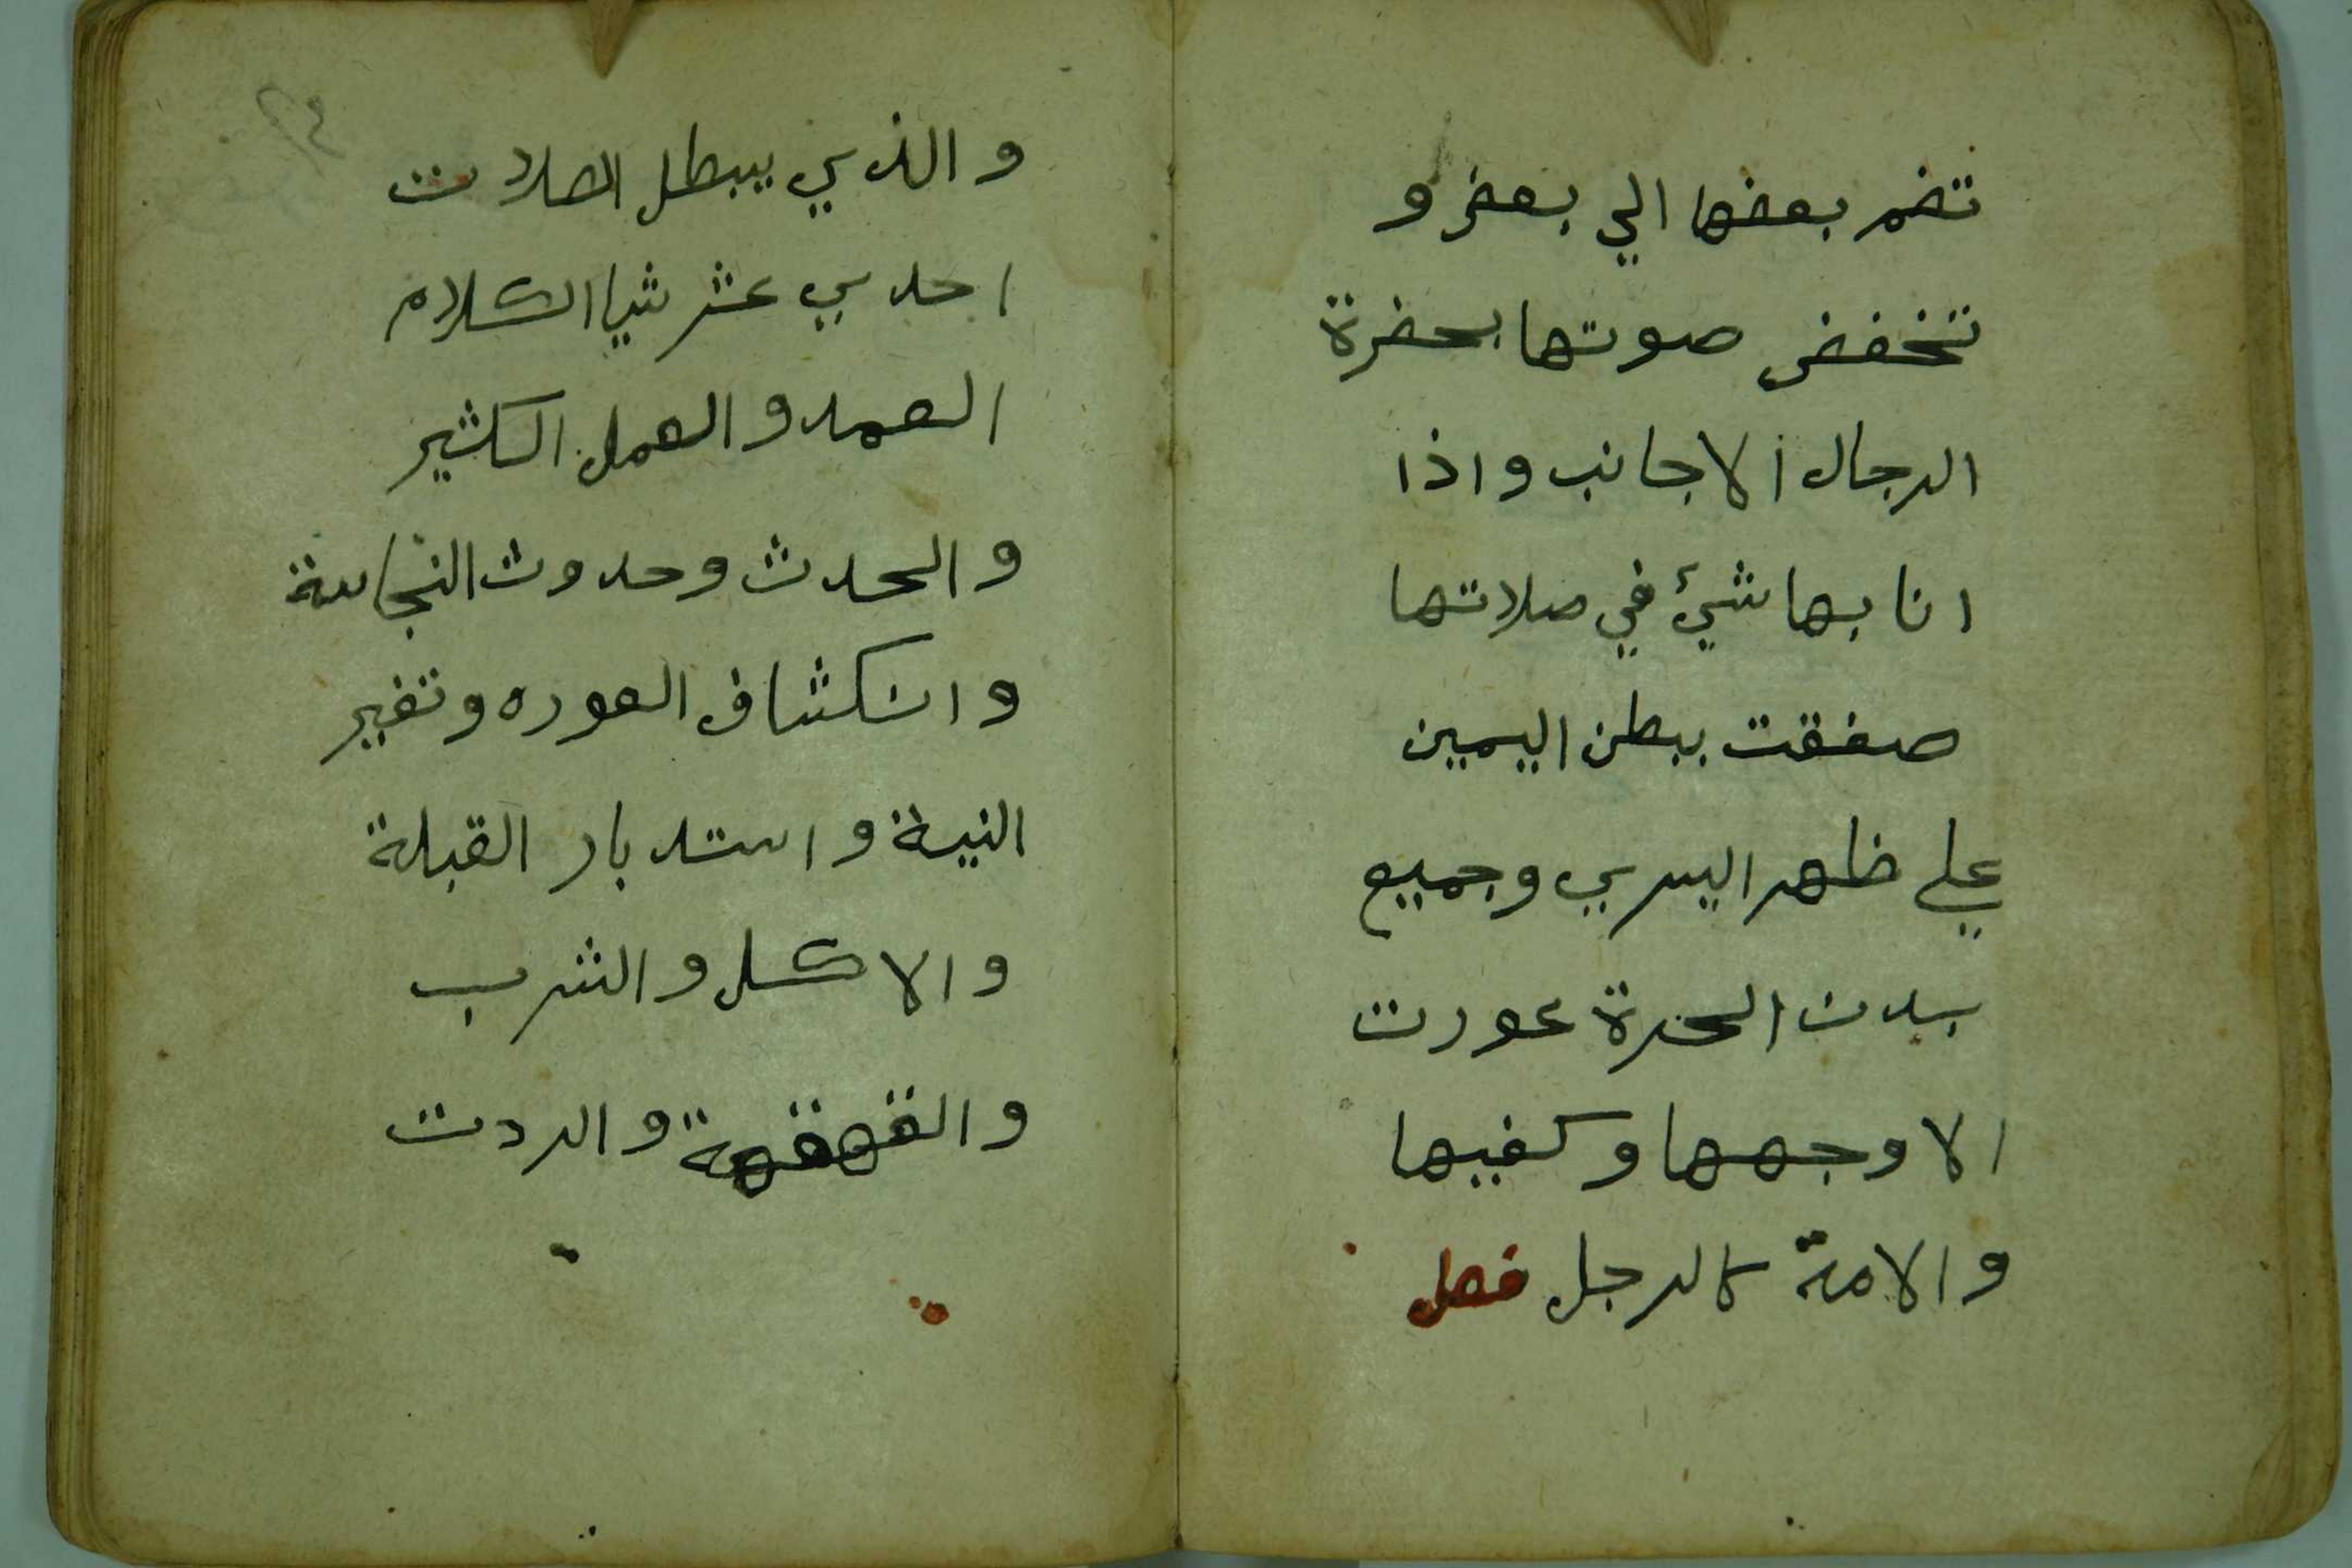 تضم بعضها الي بعض و
تخفض صوتها بحضرة
الرجال الاجانب واذا
انابها شيئ في صلاتها
صفقت ببطن اليمين
علي ظهر اليسري وجميع
بدن الحرة عورت
الا وجهها وكفيها
والامة كالرجل فصل
والذي يبطل الصلات
احدي عشر شيا الكلام
العمد والعمل الكثير
والحدث وحدوث النجاسة
وانكشاف العوره وتغير
النية واستدبار القبلة
والاكل والشرب
والقهقهة والردت